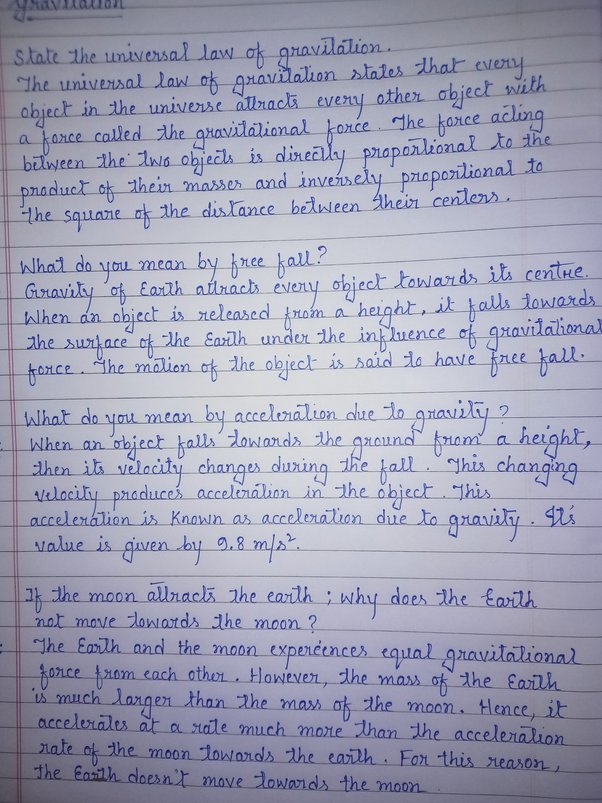 Gravitation
State the universal law of gravitation.
The universal law of gravitation states that every
object in the universe attracts every other object with
a force called the gravitational force. The force acting
between the two objects is directly proportional to the
product of their masses and inversely proportional to
the square of the distance between their centers.
What do you mean by free fall?
Gravity of Earth attracts every object towards its centre.
When an object is released from a height, it falls towards
the surface of the Earth under the influence of gravitational
force. The motion of the object is said to have free fall.
What do you mean by acceleration due to gravity?
When an object falls towards the ground from a height,
then its velocity changes during the fall. This changing
velocity produces acceleration in the object. This
acceleration is known as acceleration due to gravity. It's
value is given by 9.8 m/s².
If the moon attracts the earth; why does the Earth
not move towards the moon?
The Earth and the moon experéences equal gravitational
force from each other. However, the mass of the Earth
is much larger than the mass of the moon. Hence, it
accelerates at a rate much more than the acceleration
rate of the moon towards the earth. For this reason,
the Earth doesn't move towards the moon.